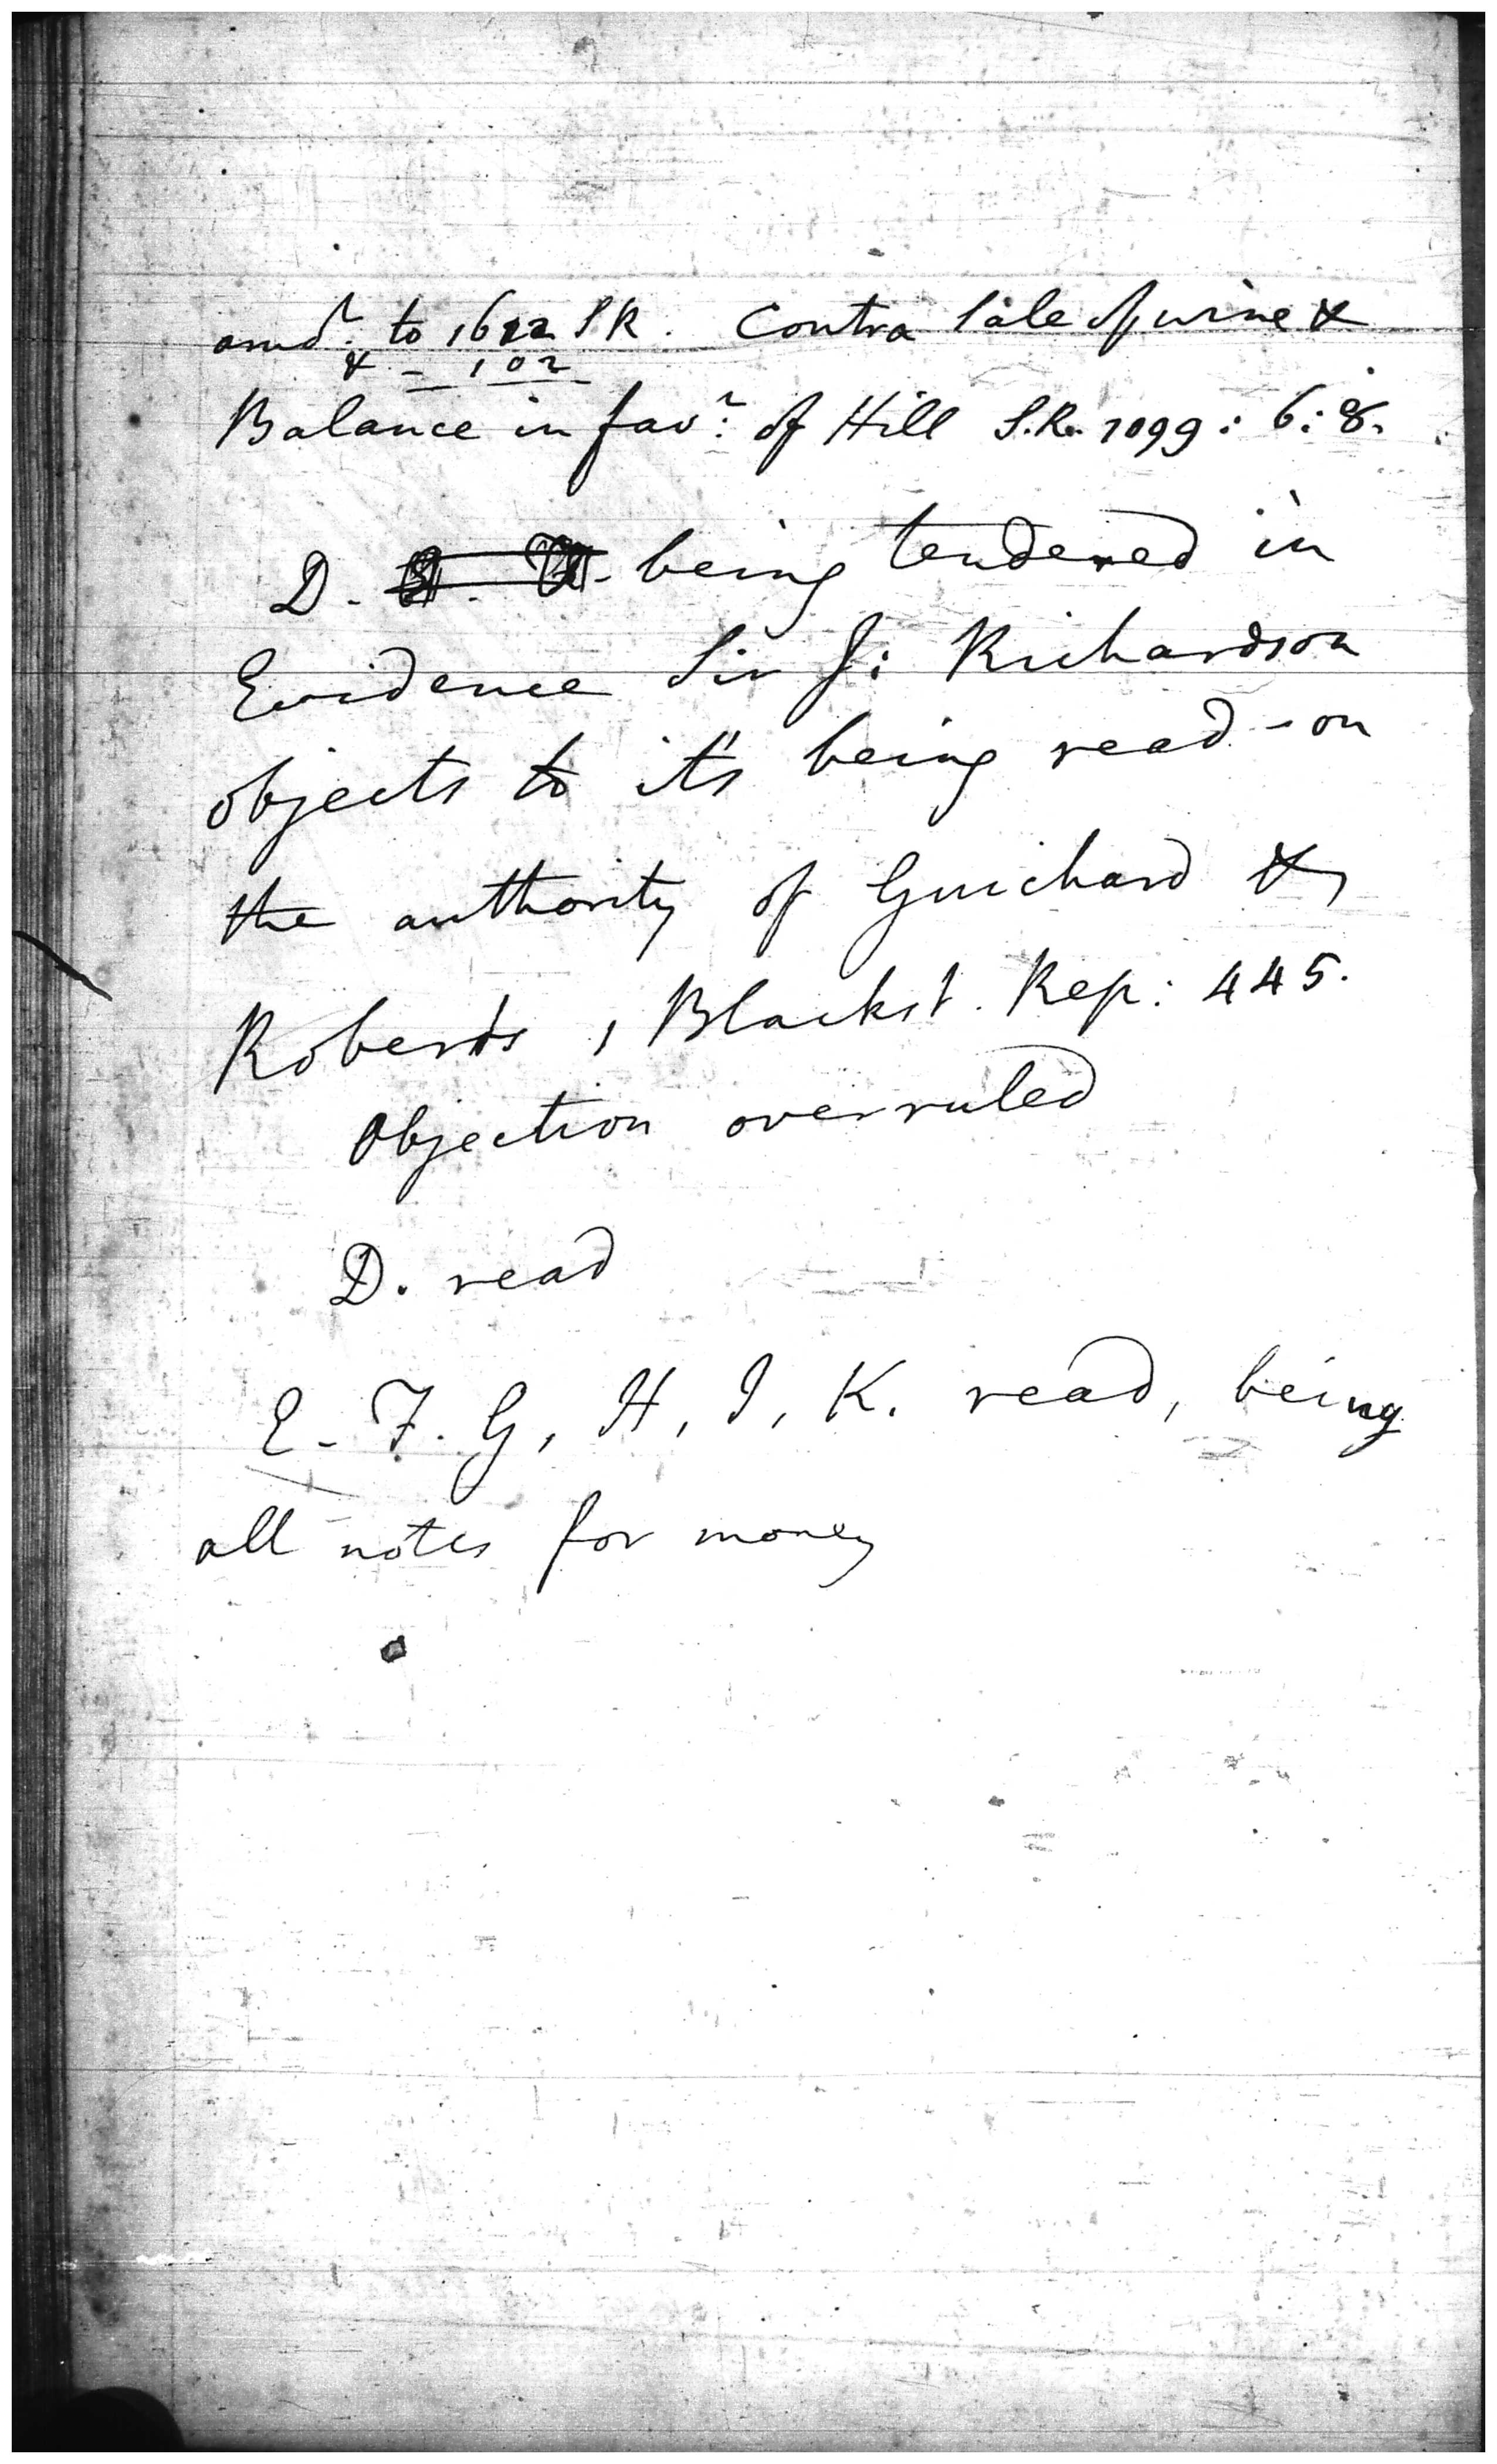 to 1622 SR. Contra Sale of wine &
& - 102
Balance in fav:r of Hill S.R. 1099: 6: 8.
D. being tendered in
Evidence Sir J: Richardson
objects to it's being read - on
the authority of Guichard &
Roberts, 1 Blackst. Rep: 445.
Objection overruled
D. read
E. F. G, H, I, K. read, being
all notes for money